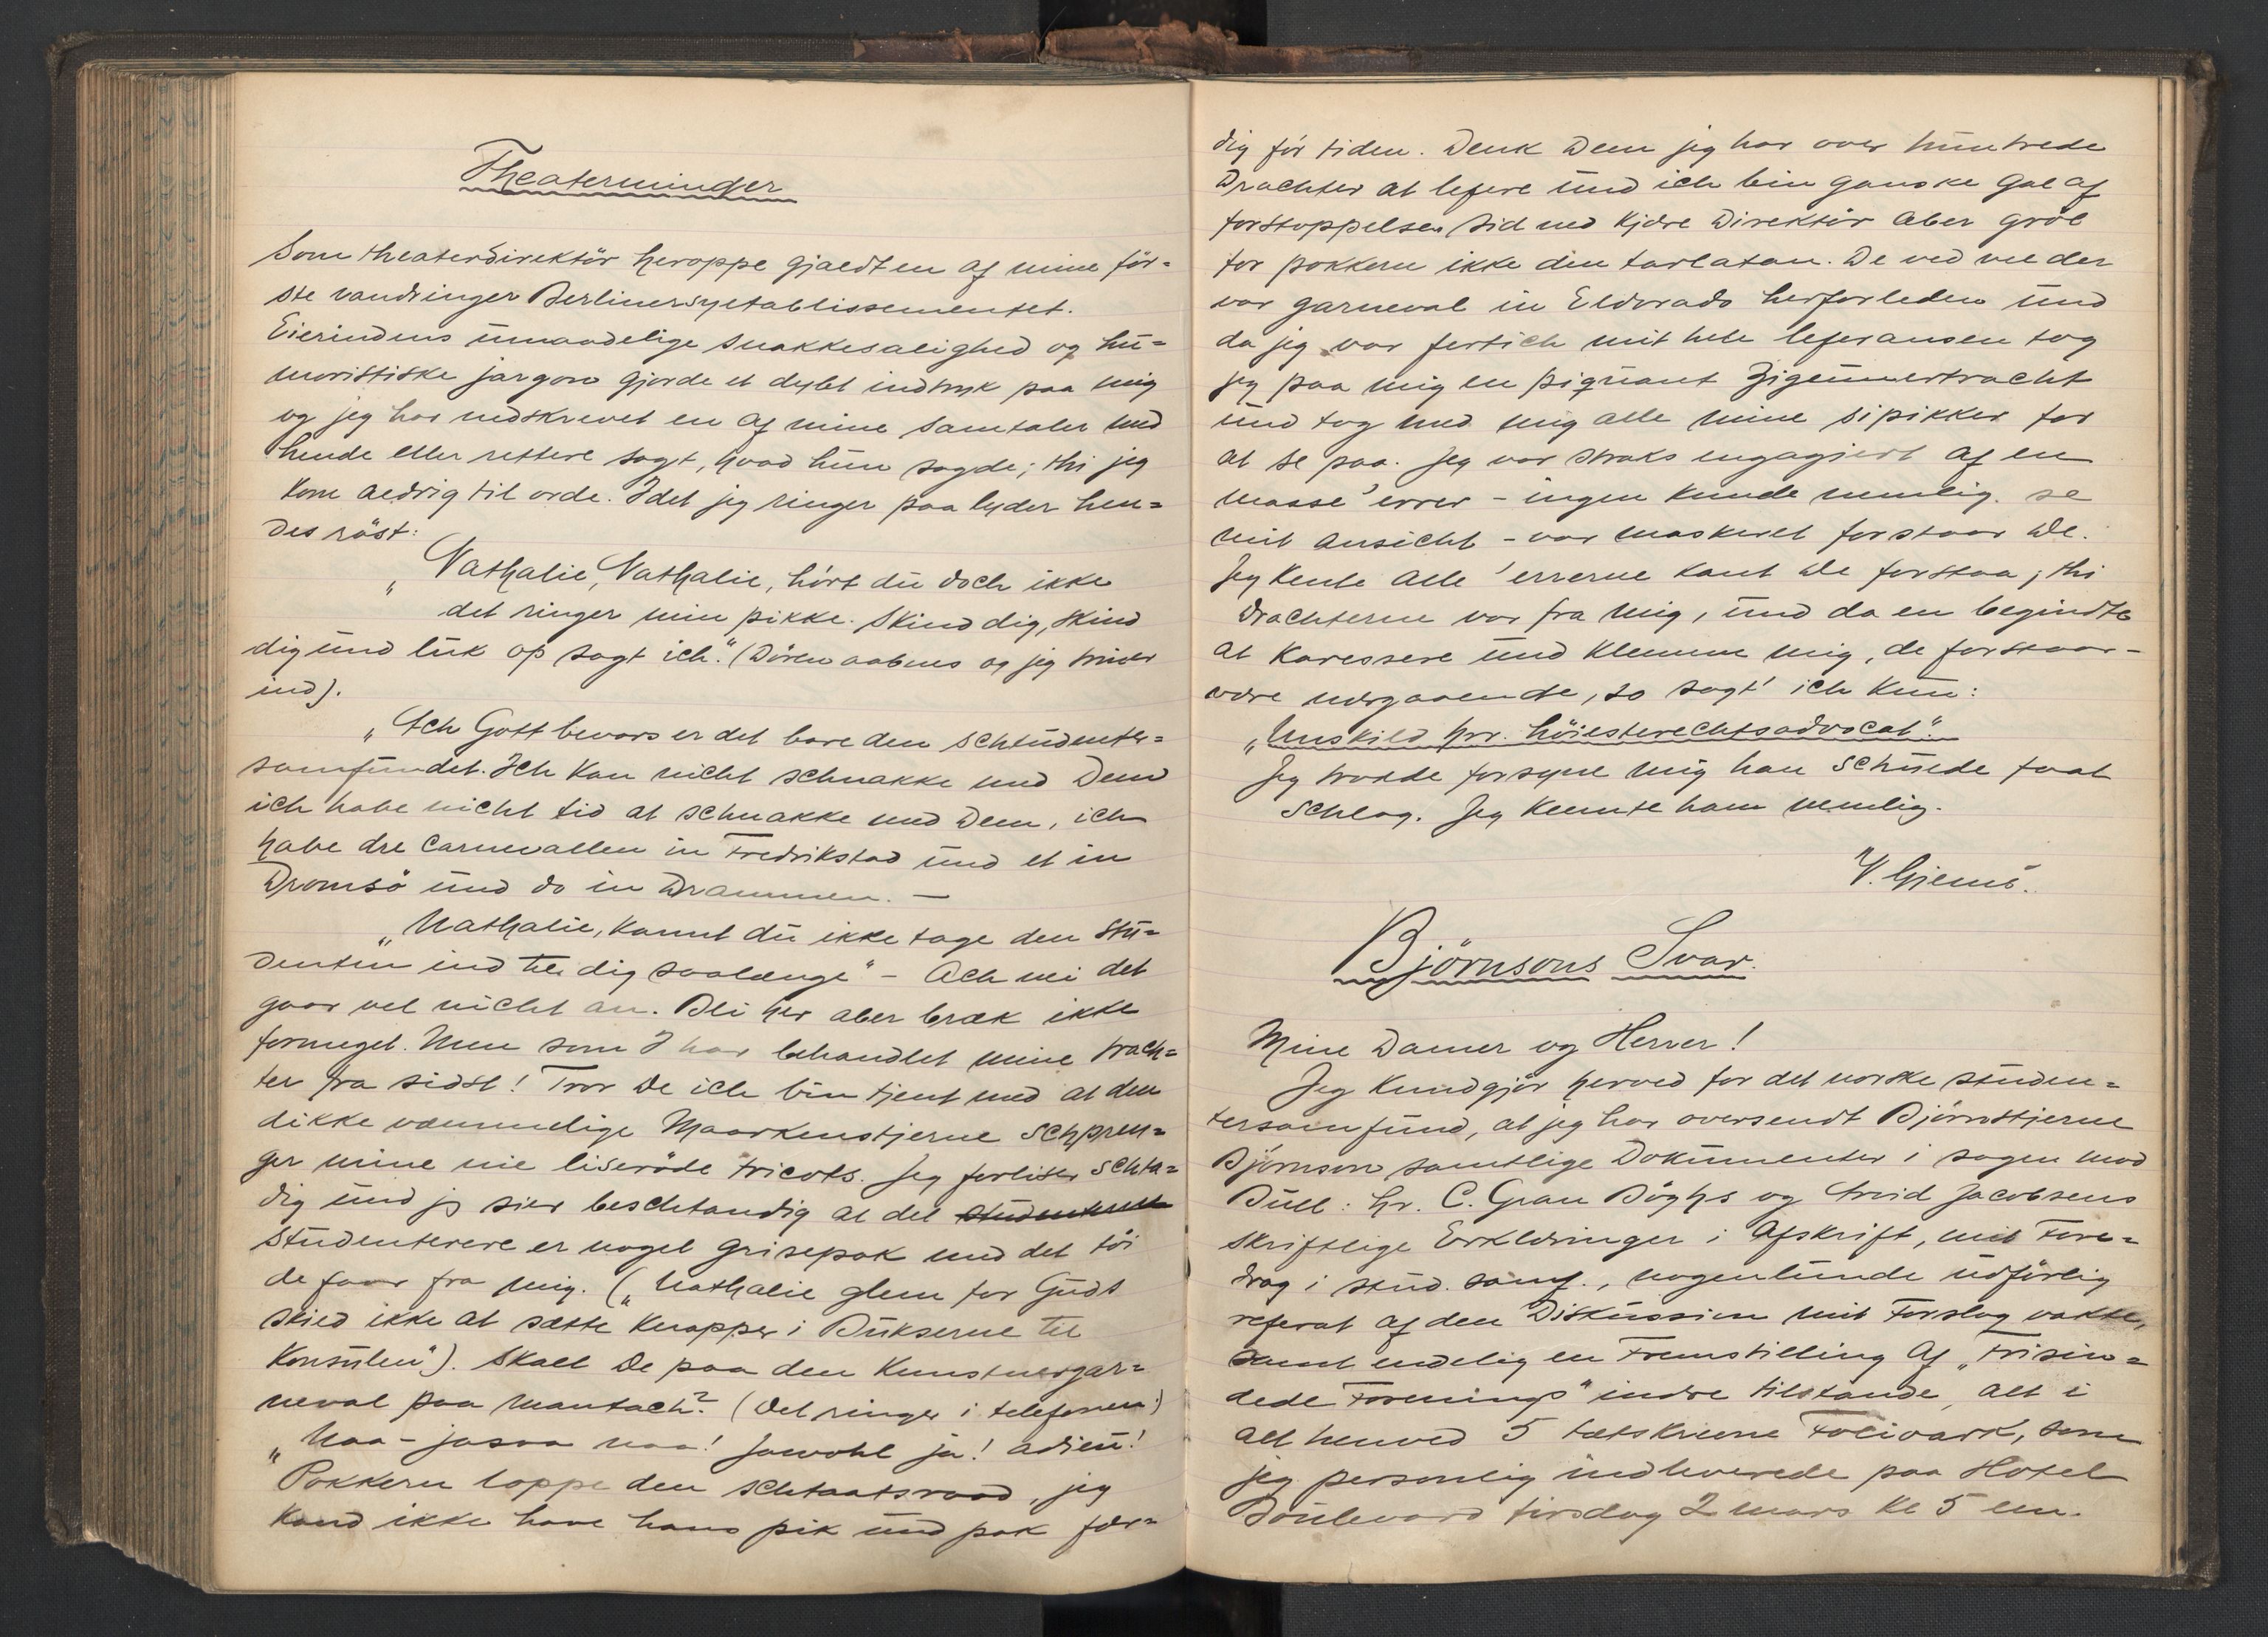 Theaterminder
Som theaterdirektör heroppe gjaldt en af mine för=
ste vandringer Berlinersyetablissementet.
Eierindens umaadelige snakkesalighed og hu=
moristiske jargon gjorde et dybt indtryk paa mig
og jeg har nedskrevet en af mine samtaler med
hende eller rettere sagt, hvad hun sagde; thi jeg
kom aldrig til orde. Idet jeg ringer paa lyder hen=
des röst:
„Nathalie, Nathalie, hört du doch ikke
det ringer min pikke. Skind dig, skind
dig und luk op sagt ich." (Dören aabnes og jeg træder
ind).
„Ach Gott bevars er det bare den schtudenter=
samfundet. Ich kan nicht schnakke med Dem
ich habe nicht tid at schnakke med Dem, ich
habe dre Carnevallen in Fredrikstad und et in
Dromsö und do in Drammen. —
„Nathalie, kannt du ikke tage den stu=
denten ind til dig saalænge" - Ach nei det
gaar vel nicht an. Bli her aber bræk ikke
formeget. Men som I har behandlet mine trach=
ter fra sidst! Tror De ich bin tjent med at den
dikke væmmelige Maarkenstjerne schpren=
ger mine nie liseröde tricots. Jeg forliser schta=
dig und jeg sier beschtandig at det
studenterere er noget grisepak med det töi
de faar fra mig. („Nathalie glem for Guds
skied ikke at sætte knapper i Bukserne til
Konsulen"). Skall De paa den Kunstnergar=
neval paa mantach? (Det ringer i telefonen:)
„Naa - jasaa naa! Jawohl ja! adieu!
Pokkern loppe den schtaatsraad, jeg
kand ikke have hans pik und pak fær=
dig för tiden. Denk Dem jeg har over huntrede
Drachter at lefere und ich bin ganske gal af
forstoppelsen sid ned kjære Direktör aber gröl
for pokkern ikke den tarlatan. De ved vel der
var garneval in Eldorado herforleden und
da jeg var fertich mit hele leferansen tog
jeg paa mig en piquant Zigeunertracht
und tog med mig alle mine sipikker for
at se paa. Jeg var straks engagiert af en
masse 'errer - ingen kunde nemlig se
mit ansicht - var maskeret forstaar De.
Jeg kente alle 'errerne kant De forstaa; thi
drachterne var fra mig, und da en begindte
at karessere und klemme mig, de forstaar -
være nærgaaende, so sagt' ich kun:
„Unskild hrr. höiesterechtsadvocat".
Jeg trodde forsyne mig han schulde faat
schlag. Jeg kennte ham nemlig.
V. Gjems.
Björnsons Svar.
Mine Damer og Herrer!
Jeg kundgjör herved for det norske studen=
tersamfund, at jeg har oversendt Björnstjerne
Björnson samtlige Dokumenter i sagen mod
Bull: Hr. C. Gran Böghs og Arvid Jacobsens
skriftlige Erklæringer i Afskrift, mit Fore=
drag i stud. samf., nogenlunde udförlig
referat af den Diskussion mit Forslag vakte,
samt endelig en Fremstilling af „Frisin=
dede Forenings" indre tilstande, alt i
alt henved 5 tætskrevne Folioark, som
jeg personlig indleverede paa Hotel
Boulevard tirsdag 2 mars kl 5 em.